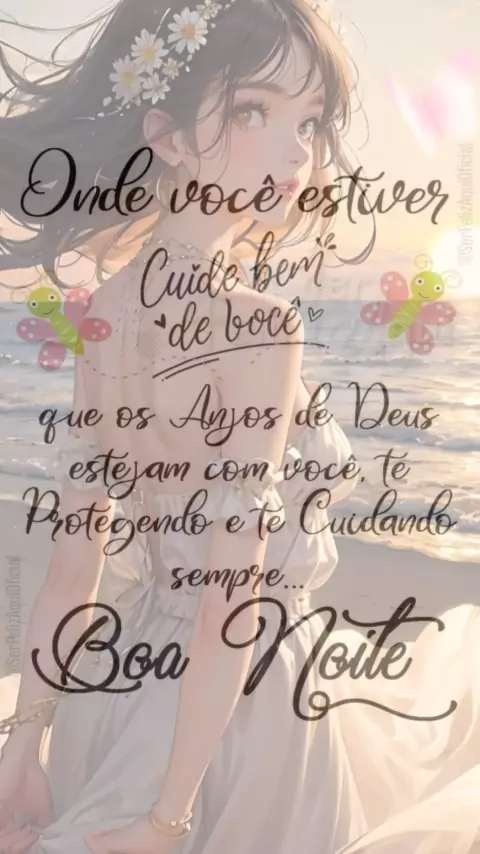 Onde você estiver
Cuide bem
de você
que os Anjos de Deus
estejam com você, te
Protegendo e te Cuidando
sempre...
Boa Noite
@SerFelizAquiOficial
@SerFelizAquiOficial